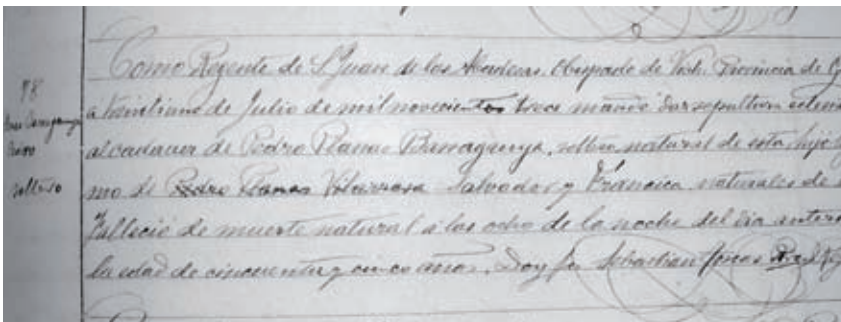 Como Regente de S. Juan de las Abadesas. Obispado de Vich. Provincia de G
a treintiuno de Julio de mil novecientos trece mandé dar sepultura
al cadaver de Pedro Planas Barraganya, soltero natural de esta hijo
mo de Pedro Planas Salvador y Francisca naturales de
Falleció de muerte natural a las ocho de la noche del dia anteri
la edad de cincuenta y cinco años. Doy fe Sebastian Reg
98
soltero